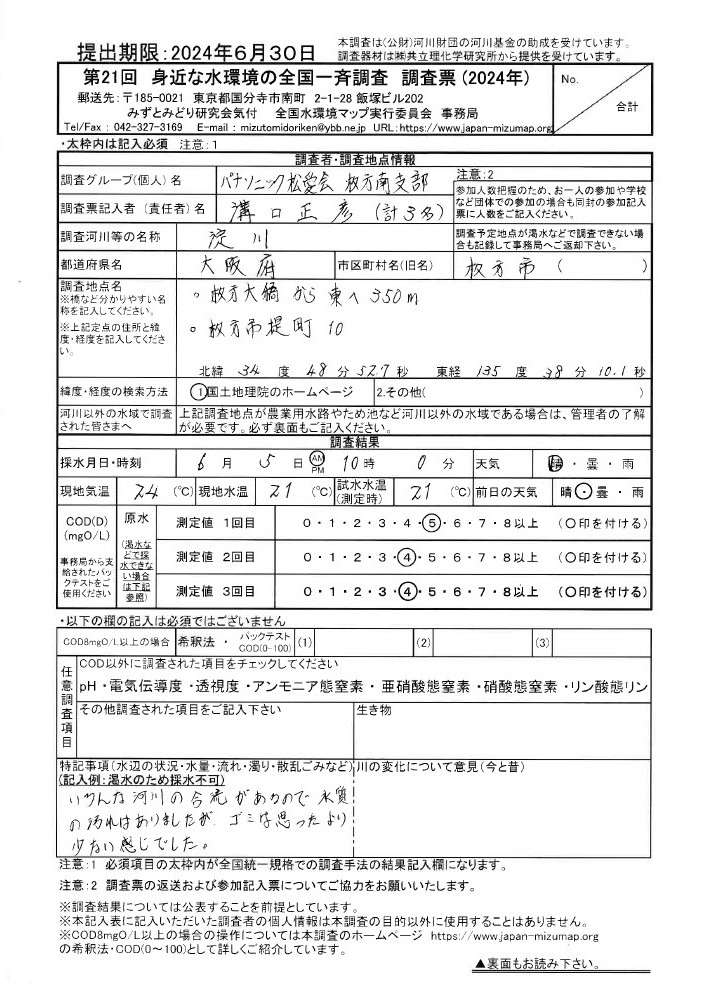 提出期限:2024年6月30日
本調査は(公財)河川財団の河川基金の助成を受けています。
調査器材は㈱共立理化学研究所から提供を受けています。
第21回 身近な水環境の全国一斉調査 調査票(2024年)
郵送先:〒185-0021 東京都国分寺市南町 2-1-28 飯塚ビル202
みずとみどり研究会気付 全国水環境マップ実行委員会 事務局
Tel/Fax : 042-327-3169 E-mail : mizutomidoriken@ybb.ne.jp URL:https://www.japan-mizumap.org
No.
合計
・太枠内は記入必須 注意:1
調査者・調査地点情報
調査グループ(個人)名 パナソニック松愛会 枚方南支部
注意:2
参加人数把握のため、お一人の参加や学校
など団体での参加の場合も同封の参加記入
票に人数をご記入ください。
調査票記入者(責任者)名 溝口正彦(計3名)
調査河川等の名称 淀川
調査予定地点が渇水などで調査できない場
合も記録して事務局へご返却下さい。
都道府県名 大阪府 市区町村名(旧名) 枚方市( )
調査地点名
※橋など分かりやすい名
称を記入してください。
※上記定点の住所と緯
度・経度を記入してくださ
い。
。枚方大橋 から 東へ350m
。枚方市堤町10
北緯 34 度 48 分 52.7 秒 東経 135 度 38 分 10.1 秒
緯度・経度の検索方法 1国土地理院のホームページ 2.その他( )
河川以外の水域で調査
された皆さまへ
上記調査地点が農業用水路やため池など河川以外の水域である場合は、管理者の了解
が必要です。必ず裏面もご記入ください。
調査結果
採水月日・時刻 6 月 5 日 AM PM 10 時 0 分 天気 晴・曇・雨
現地気温 24 (℃) 現地水温 21 (℃) 試水水温(測定時) 21 (℃) 前日の天気 晴・曇・雨
COD(D)
(mgO/L)
事務局から支
給されたパッ
クテストをご
使用ください
原水
(渇水な
どで採
水できな
い場合
は下記
参照)
測定値 1回目 0・1・2・3・4・5・6・7・8以上 (○印を付ける)
測定値 2回目 0・1・2・3・4・5・6・7・8以上 (○印を付ける)
測定値 3回目 0・1・2・3・4・5・6・7・8以上 (○印を付ける)
・以下の欄の記入は必須ではございません
COD8mgO/L以上の場合 希釈法・ パックテスト COD(0-100) (1) (2) (3)
任意調査項目
COD以外に調査された項目をチェックしてください
pH・電気伝導度・透視度・アンモニア態窒素・亜硝酸態窒素・硝酸態窒素・リン酸態リン
その他調査された項目をご記入下さい 生き物
特記事項(水辺の状況・水量・流れ・濁り・散乱ごみなど) 川の変化について意見(今と昔)
(記入例:渇水のため採水不可)
いろんな河川の合流があるので水質
の汚れはありましたが、ゴミは思ったより
少ない感じでした。
注意:1 必須項目の太枠内が全国統一規格での調査手法の結果記入欄になります。
注意:2 調査票の返送および参加記入票についてご協力をお願いいたします。
※調査結果については公表することを前提としています。
※本記入表に記入いただいた調査者の個人情報は本調査の目的以外に使用することはありません。
※COD8mgO/L以上の場合の操作については本調査のホームページ https://www.japan-mizumap.org
の希釈法・COD(0～100)として詳しくご紹介しています。
▲裏面もお読み下さい。